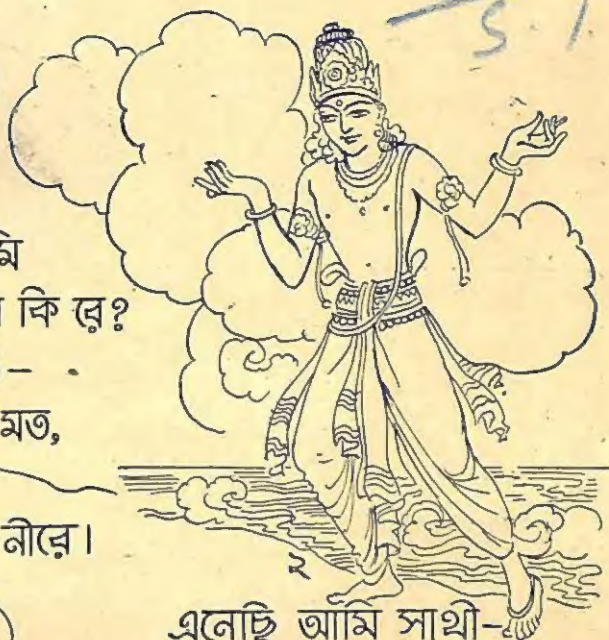 মি
কি রে?
—
মত,
নীরে।
২
এনেছি আমি সাথী-